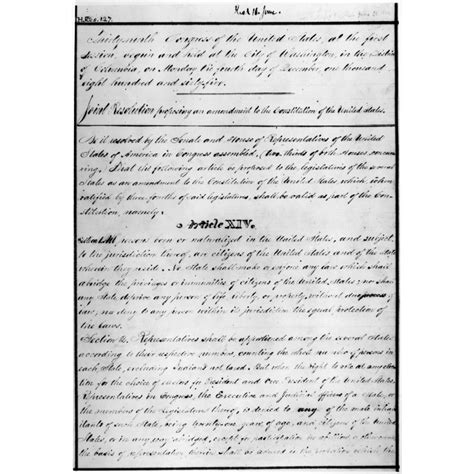 H.Res. 127.
Thirty-ninth Congress of the United States, at the first
Session, begun and held at the City of Washington, in the District
of Columbia, on Monday the fourth day of December, one thousand
eight hundred and sixty-five.
Joint Resolution proposing an amendment to the Constitution of the United States.
Be it resolved by the Senate and House of Representatives of the United
States of America in Congress assembled, (two thirds of both Houses concur-
ring,) That the following article be proposed to the legislatures of the several
States as an amendment to the Constitution of the United States, which, when
ratified by three fourths of said legislatures, shall be valid as part of the Con-
stitution, namely:
Article XIV.
Section 1. All persons born or naturalized in the United States, and subject
to the jurisdiction thereof, are citizens of the United States and of the State
wherein they reside. No State shall make or enforce any law which shall
abridge the privileges or immunities of citizens of the United States; nor shall
any State deprive any person of life, liberty, or property, without due process of
law; nor deny to any person within its jurisdiction the equal protection of
the laws.
Section 2. Representatives shall be apportioned among the several States
according to their respective numbers, counting the whole number of persons in
each State, excluding Indians not taxed. But when the right to vote at any elec-
tion for the choice of electors for President and Vice President of the United States,
Representatives in Congress, the Executive and Judicial officers of a State, or
the members of the Legislature thereof, is denied to any of the male inhab-
itants of such State, being twenty-one years of age, and citizens of the United
States, or in any way abridged, except for participation in rebellion or other crime,
the basis of representation therein shall be reduced in the proportion which the